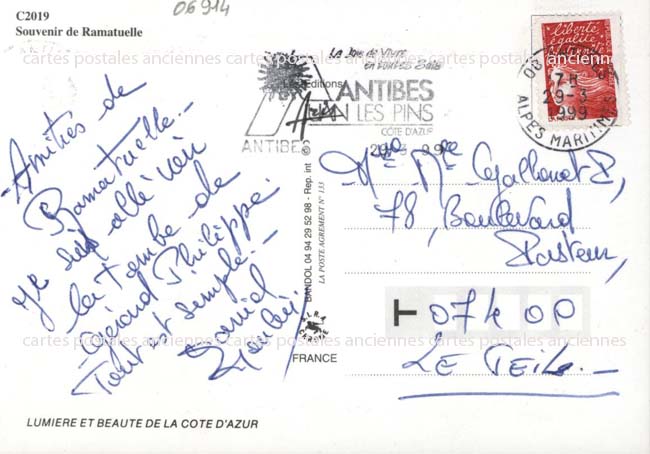 06914
C2019
Souvenir de Ramatuelle
cartes postales anciennes cartes postales anciennes cartes postales anciennes
Amitiés de
Ramatuelle.-
Je suis allé voir
la Tombe de
Gérard Philippe.
Tout est simple.-
Daniel
La Joie de Vivre
en toutes Sais
ANTIBES
JUAN LES PINS
CÔTE D'AZUR
ANTIBES
29-3 99
Les Editions
BANDOL 04 94 29 52 98 - Rep. int
LA POSTE AGREMENT N° 133
FRANCE
liberté
égalité
06
7H
29-3
1999
ALPES MARITIMES
78, Boulevard
Pasteur,
07400
LE TEIL.-
cartes postales anciennes cartes postales anciennes cartes postales anciennes
LUMIERE ET BEAUTE DE LA COTE D'AZUR